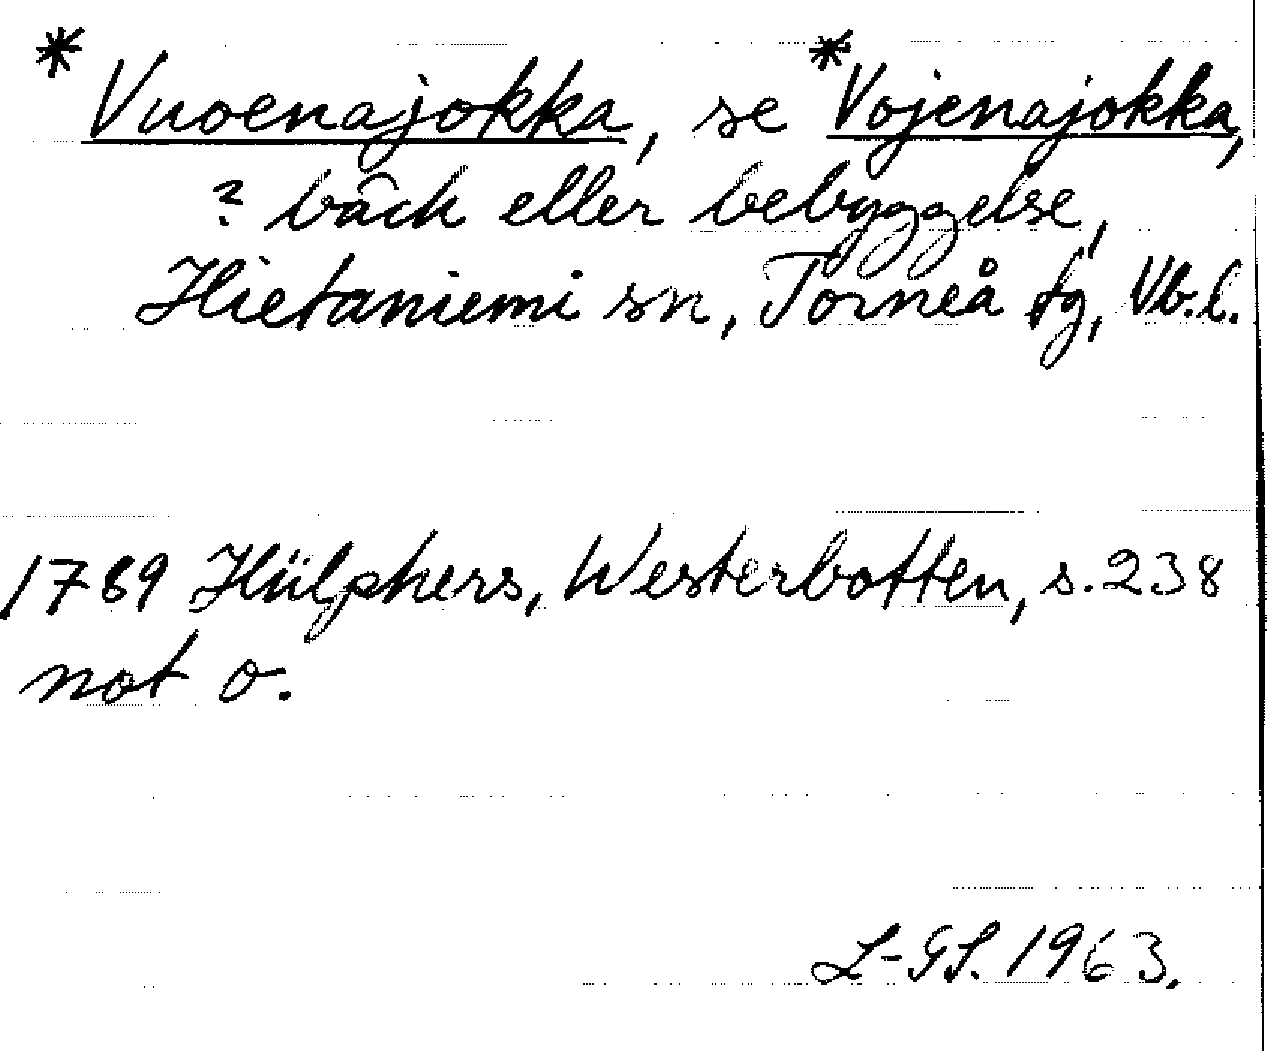 *Vuoenajokka, se *Vojenajokka,
? bäck eller bebyggelse,
Hietaniemi sn, Torneå tg, Vb. l.
1789 Hülphers, Westerbotten, s. 238
not o.
L-GL. 1963.